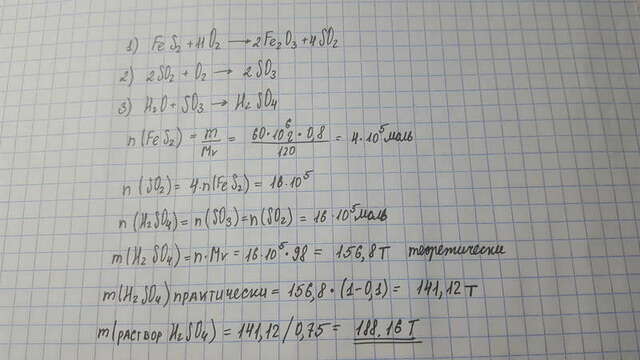 1) FeS₂ + 11O₂ → 2Fe₂O₃ + 4SO₂
2) 2SO₂ + O₂ → 2SO₃
3) H₂O + SO₃ → H₂SO₄
n(FeS₂) = m/Mr = 60·10⁶г·0,8/120 = 4·10⁵моль
n(SO₂) = 4·n(FeS₂) = 16·10⁵
n(H₂SO₄) = n(SO₃) = n(SO₂) = 16·10⁵моль
m(H₂SO₄) = n·Mr = 16·10⁵·98 = 156,8Т теоретически
m(H₂SO₄) практически = 156,8·(1-0,1) = 141,12Т
m(раствор H₂SO₄) = 141,12/0,75 = 188.16Т